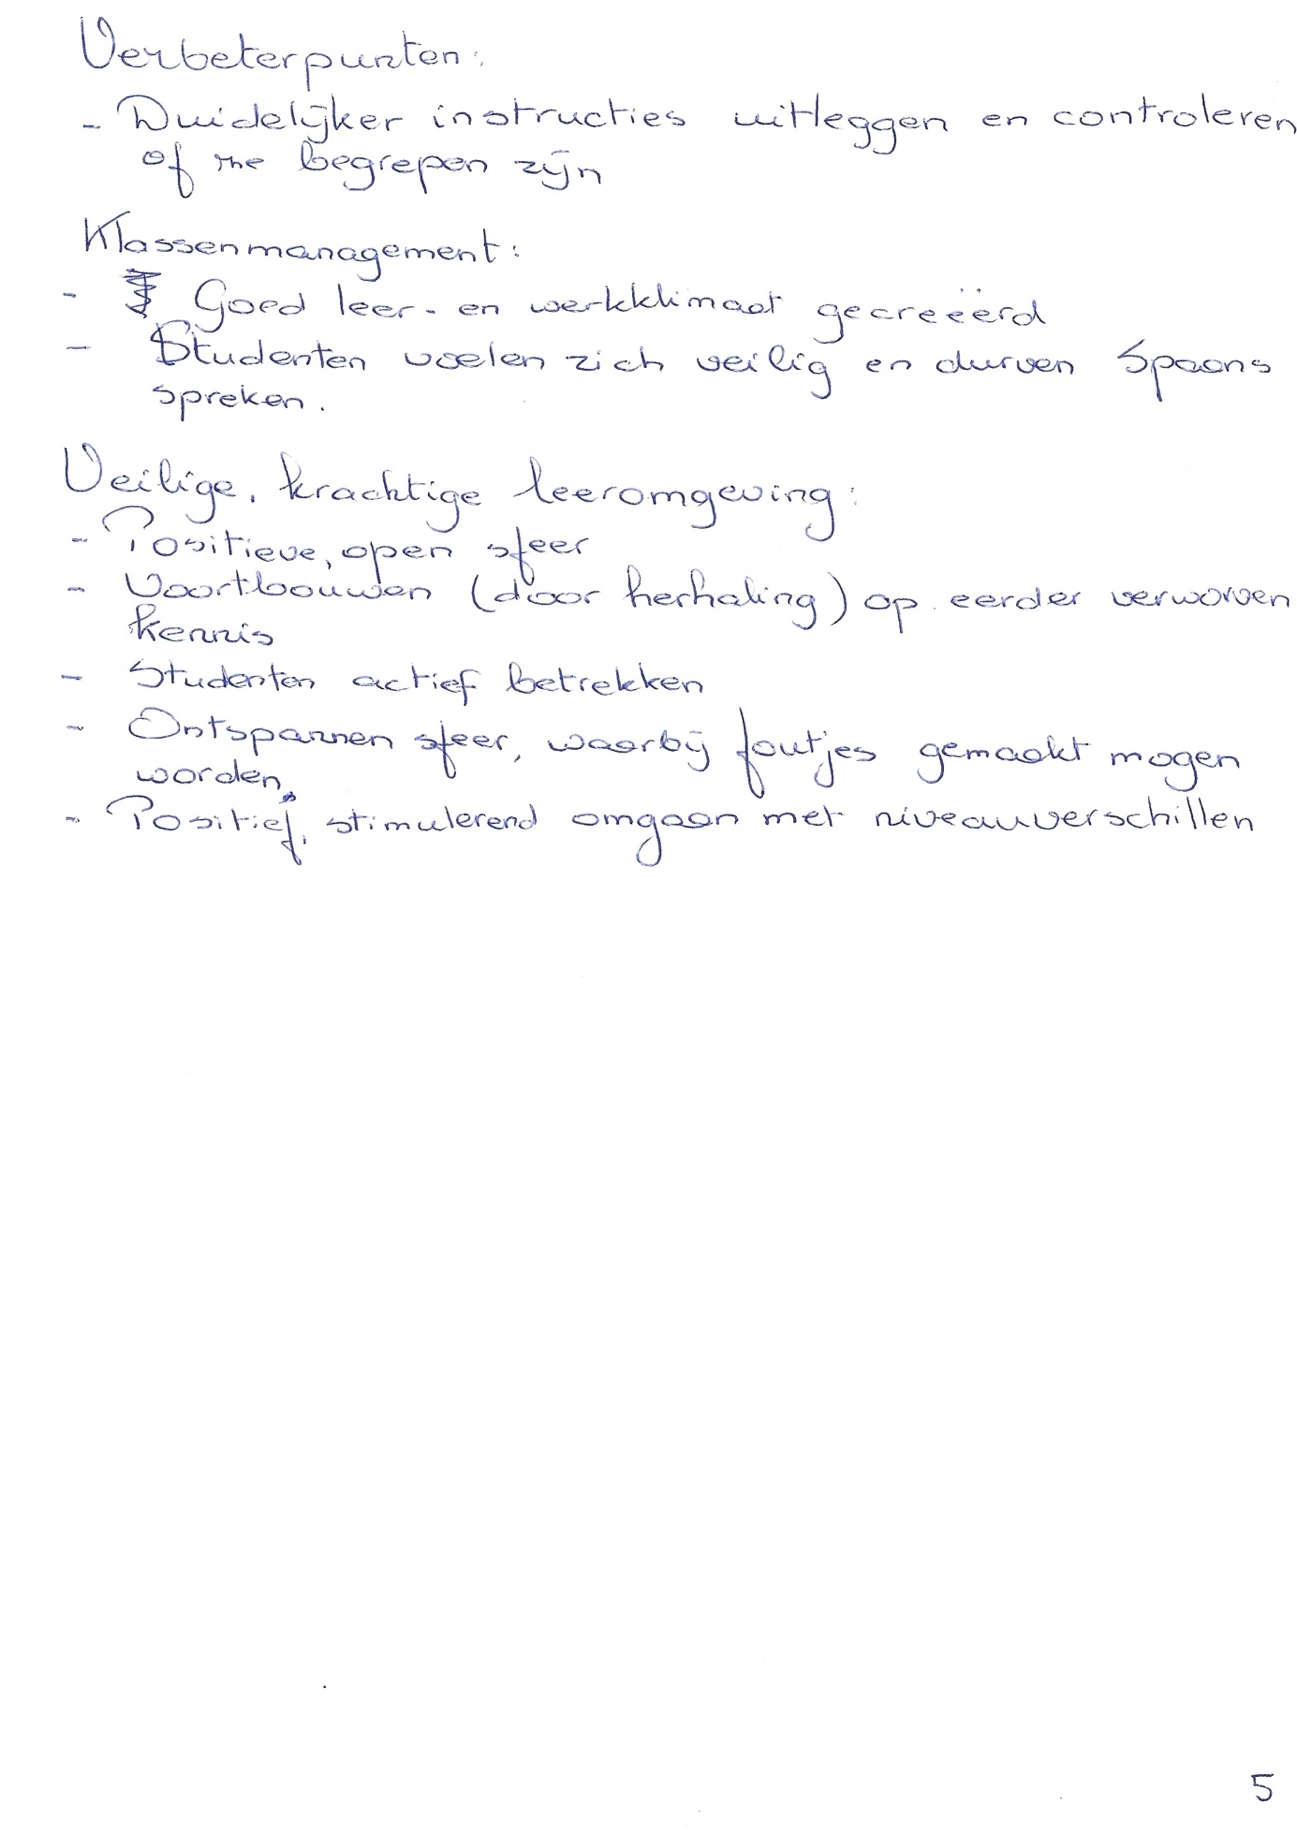 Verbeterpunten:
- Duidelijker instructies uitleggen en controleren
of ze begrepen zijn
Klassenmanagement:
- Goed leer- en werkklimaat gecreëerd
- Studenten voelen zich veilig en durven Spaans
spreken.
Veilige, krachtige leeromgeving:
- Positieve, open sfeer
- Voortbouwen (door herhaling) op eerder verworven
kennis
- Studenten actief betrekken
- Ontspannen sfeer, waarbij foutjes gemaakt mogen
worden.
- Positief, stimulerend omgaan met niveauverschillen
5